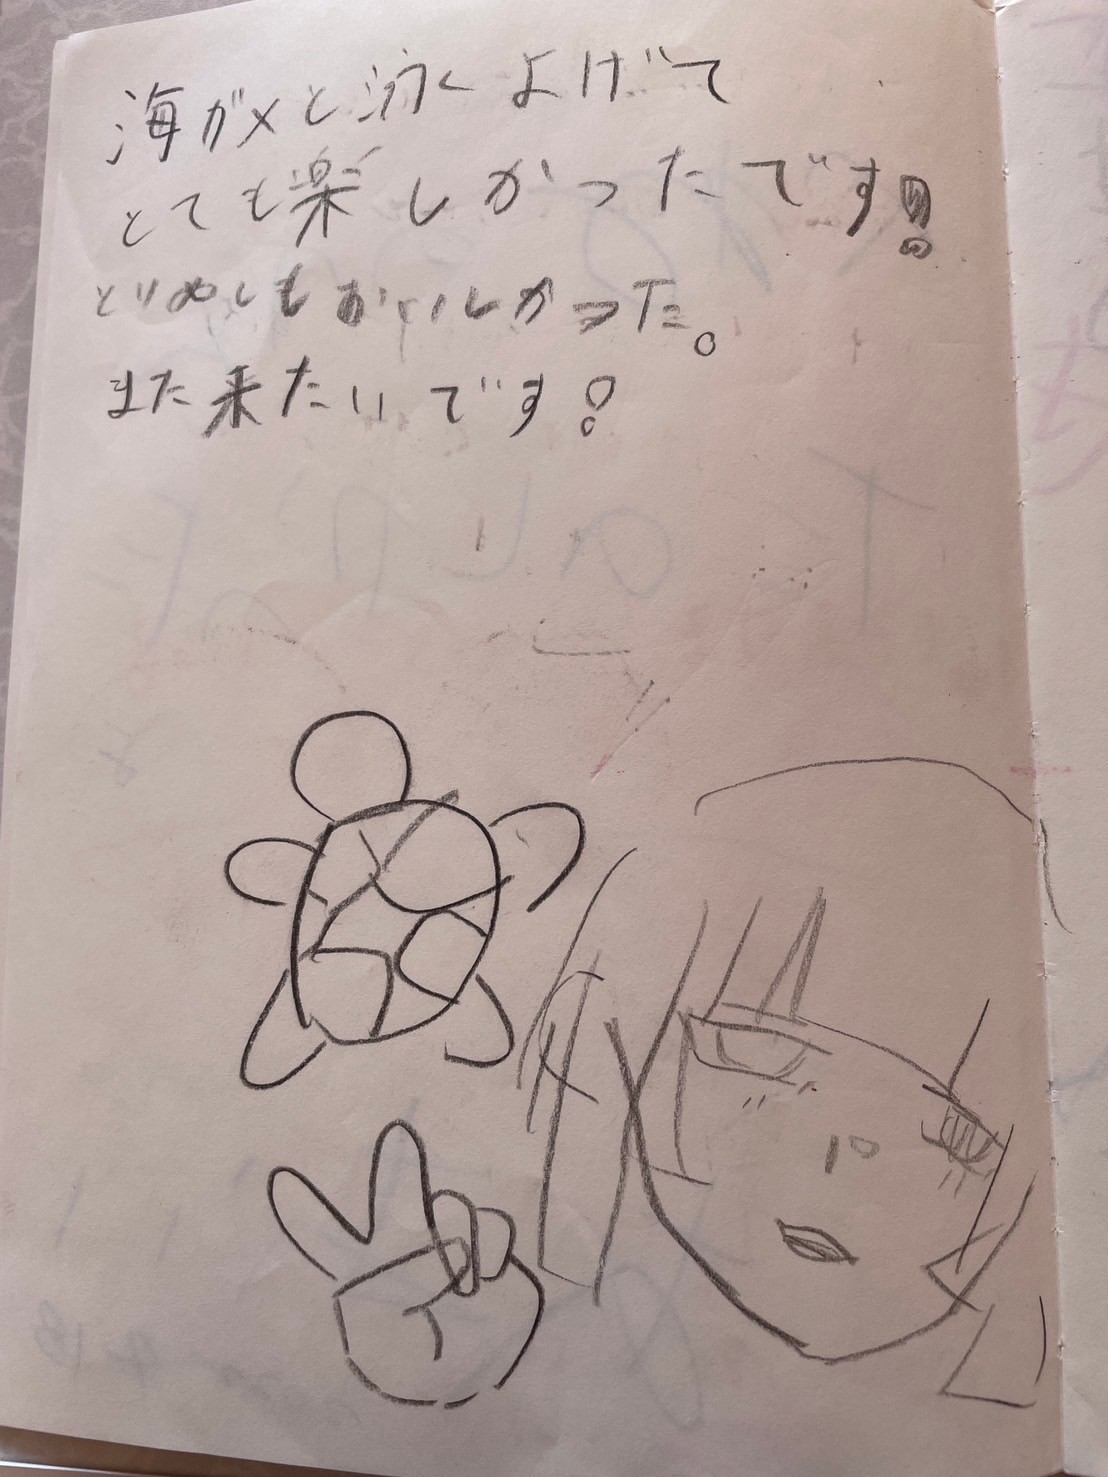 海ガメと泳よげて
とても楽しかったです!
とりめしもおいしかった。
また来たいです!